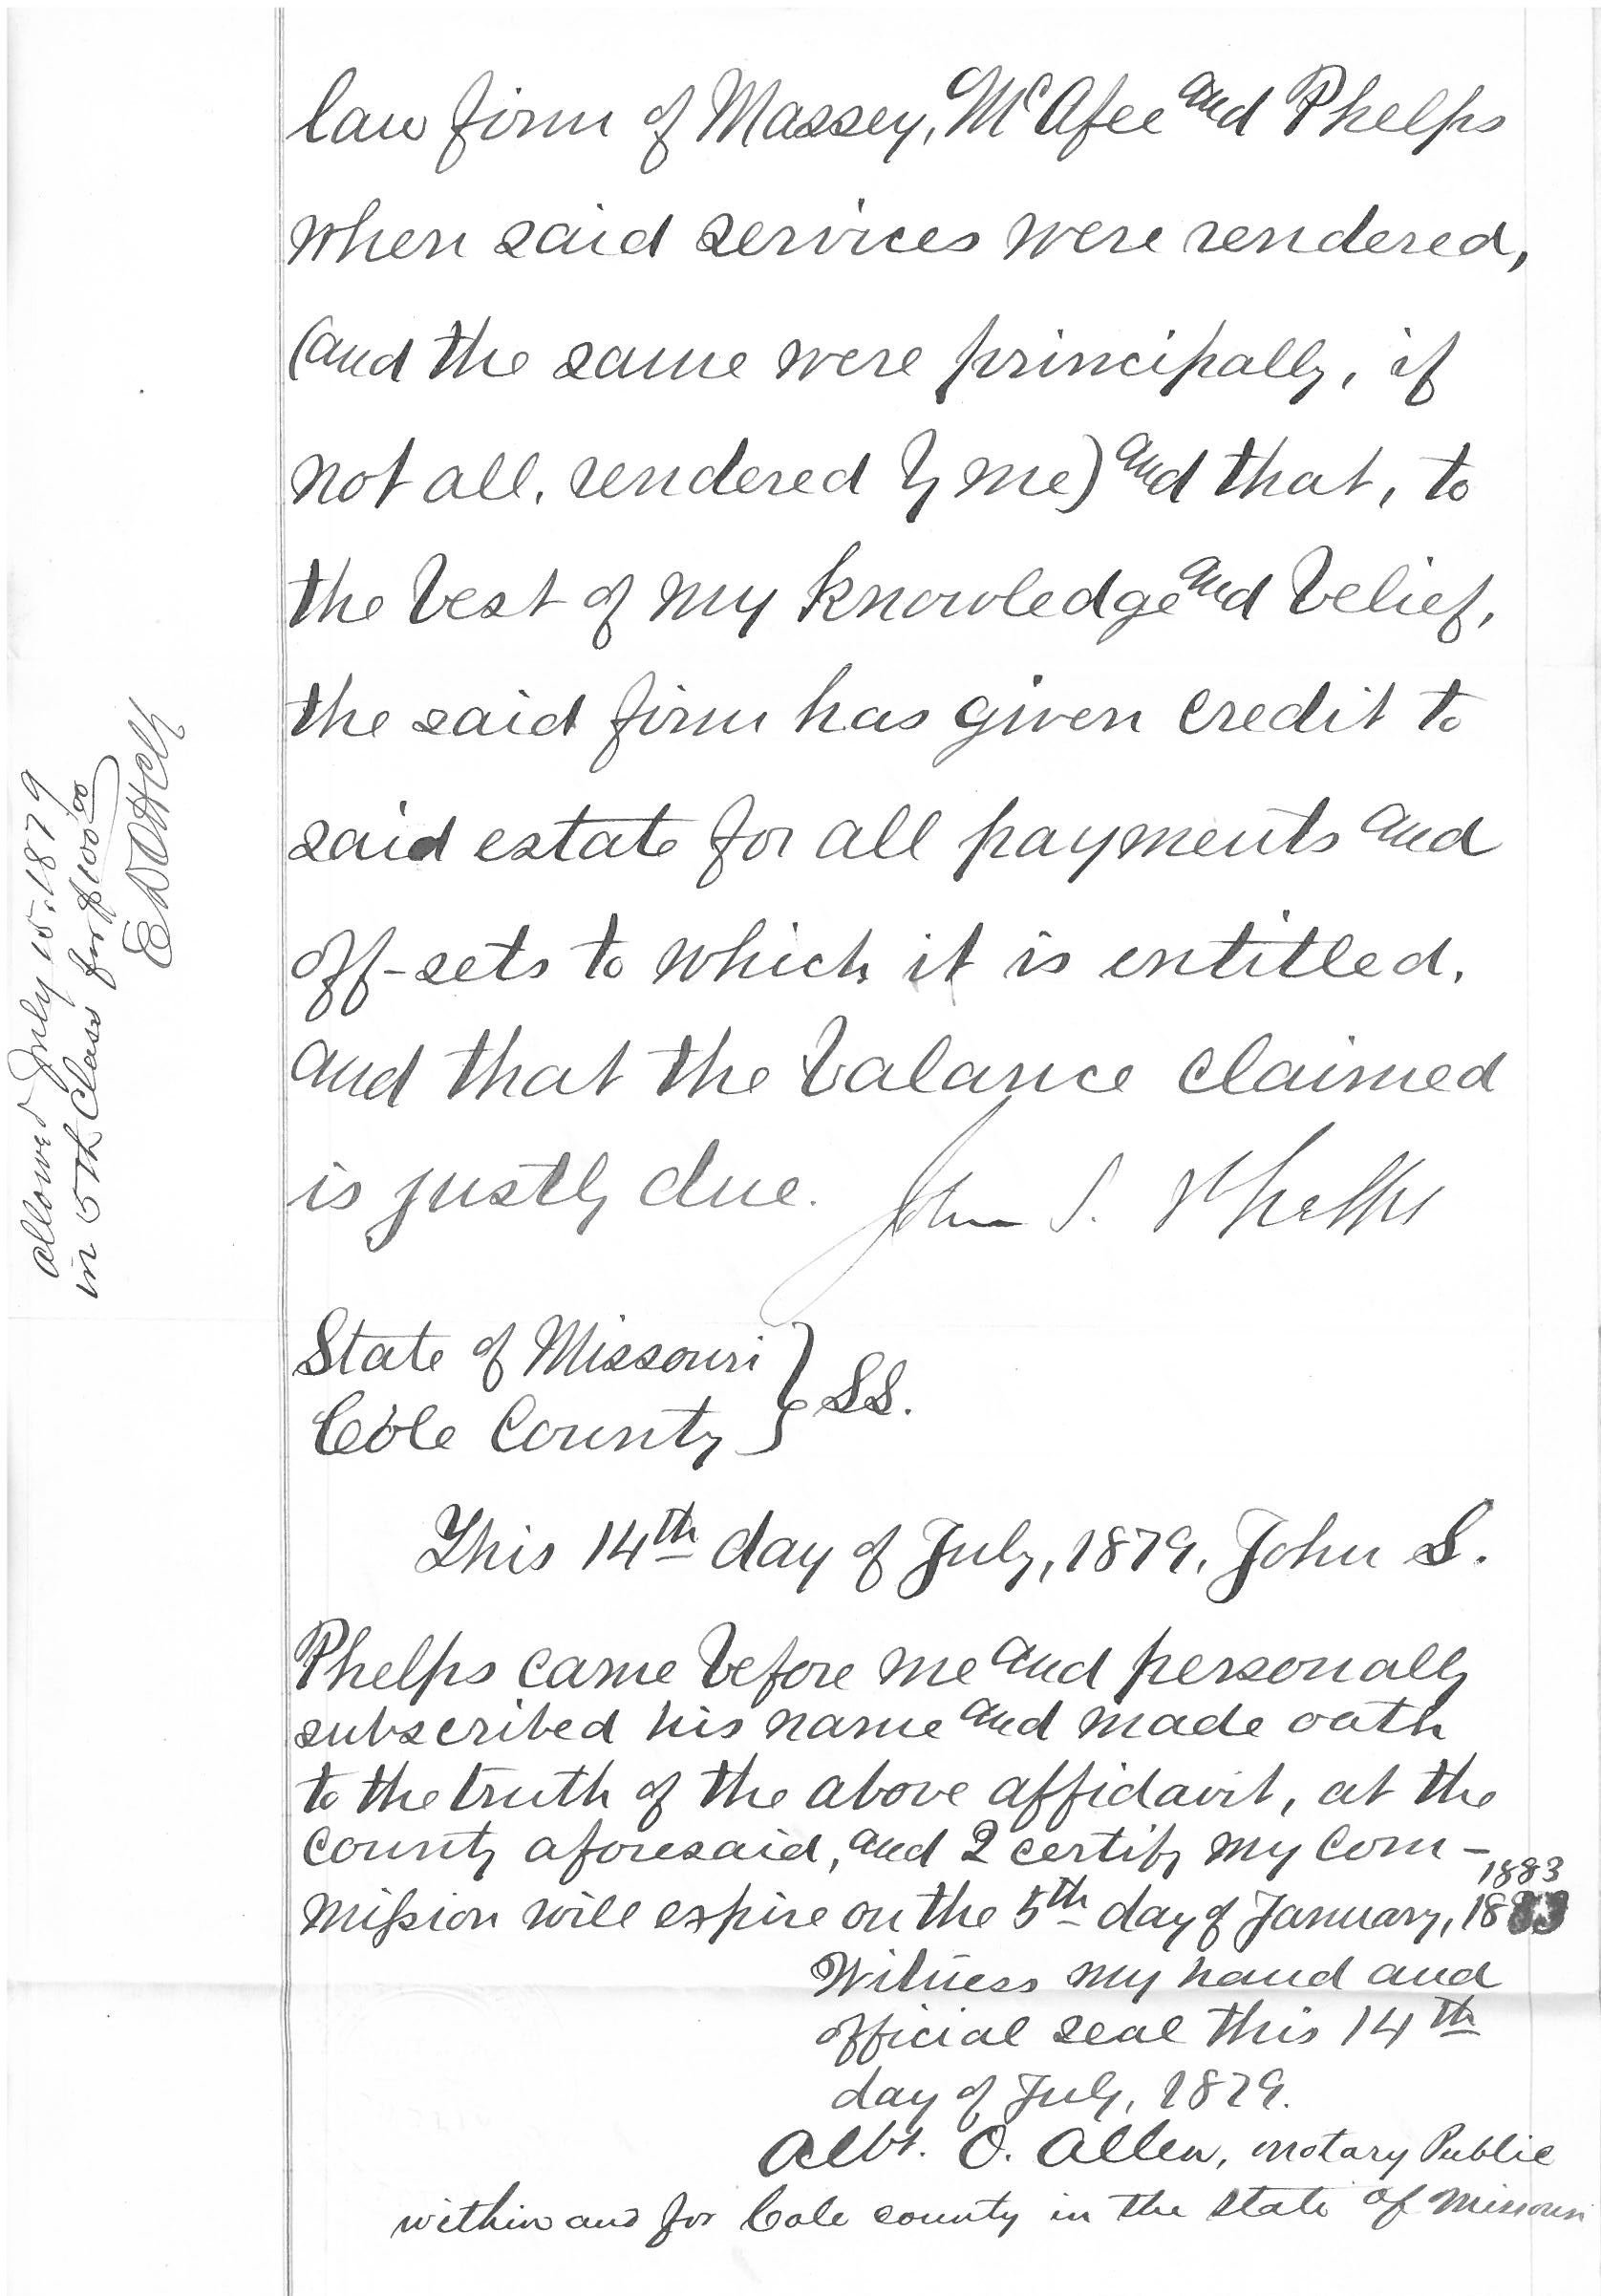 law firm of Massey, McAfee and Phelps
when said services were rendered,
(and the same were principally, if
not all, rendered by me) and that, to
the best of my knowledge and belief,
the said firm has given credit to
said estate for all payments and
off-sets to which it is entitled,
and that the balance claimed
is justly due. John S. Phelps
State of Missouri } SS.
Cole County
This 14th day of July, 1879, John S.
Phelps came before me and personally
subscribed his name and made oath
to the truth of the above affidavit, at the
County aforesaid, and I certify my Com-
mission will expire on the 5th day of January, 1883
1883
Witness my hand and
official seal this 14th
day of July, 1879.
Albt. O. Allen, Notary Public
within and for Cole county in the State of Missouri
Allowed July 15, 1879
in 5th Class for $100.00